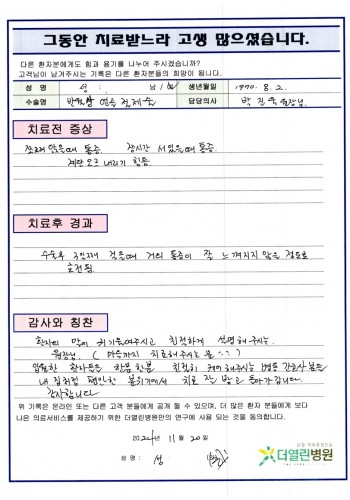 그동안 치료받느라 고생 많으셨습니다.
다른 환자분에게도 힘과 용기를 나누어 주시겠습니까?
고객님이 남겨주시는 기록은 다른 환자분들의 희망이 됩니다.
성 명 성 남/여 생년월일 1970. 8. 2.
수술명 연골 절제술 담당의사 박진욱 원장님.
치료전 증상
쪼그려 앉을때 통증. 장시간 서있을때 통증.
계단 오르 내리기 힘듬.
치료후 경과
수술후 3일째 걸을때 거의 통증이 잘 느껴지지 않을 정도로
호전됨.
감사와 칭찬
환자의 말에 귀기울여주시고 친절하게 설명해주시는
원장님 (마음까지 치료해주시는 분^^)
입원한 환자들을 한분한분 친절히 케어해주시는 병동 간호사분들
내 집처럼 편안한 분위기에서 치료 잘 받고 돌아갑니다.
감사합니다
위 기록은 온라인 또는 다른 고객 분들에게 공개 될 수 있으며, 더 많은 환자 분들에게 보다
나은 의료서비스를 제공하기 위한 더열린병원만의 연구에 사용 되는 것을 동의합니다.
2024년 11월 20일
성 명 : 성
더열린병원